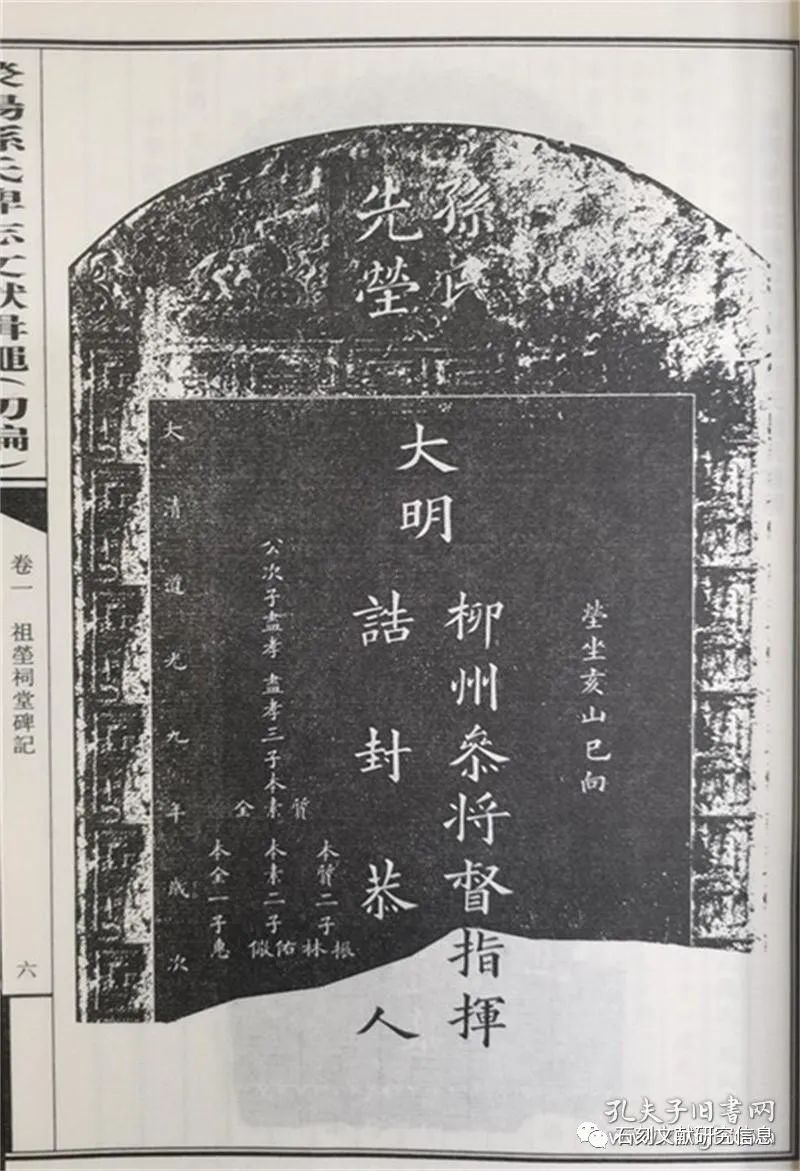 孫氏
先塋
塋坐亥山巳向
大明
柳州叅将督指揮
誥封恭人
公次子盡孝 盡孝三子本素
質
全
本質二子
振
林
本素二子
佑
俶
本全一子惠
大清道光九年歲次
滎陽孫氏碑志文獻輯繩（初編）
卷一 祖塋祠堂碑記
六
孔夫子旧书网
石刻文献研究信息